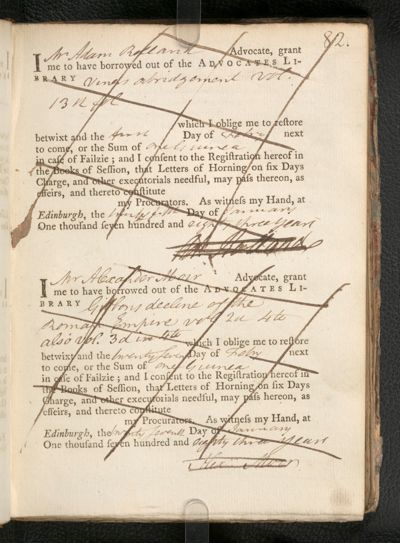 82.
I Mr Adam Rolland Advocate, grant
me to have borrowed out of the ADVOCATES LI-
BRARY Viners abridgement Vol.
13th fol
which I oblige me to reſtore
betwixt and the Day of Febry next
to come, or the Sum of one Guinea
in caſe of Failzie; and I conſent to the Regiſtration hereof in
the Books of Seſſion, that Letters of Horning on ſix Days
Charge, and other executorials needful, may paſs thereon, as
effeirs, and thereto conſtitute
my Procurators. As witneſs my Hand, at
Edinburgh, the Day of January
One thouſand ſeven hundred and eighty three years
I Mr Alexander Muir Advocate, grant
me to have borrowed out of the ADVOCATES LI-
BRARY Gibbons decline of the
Roman Empire vol. 2d 4to
also vol. 3d in 4to which I oblige me to reſtore
betwixt and the twenty seven Day of Febry next
to come, or the Sum of one Guinea
in caſe of Failzie; and I conſent to the Regiſtration hereof in
the Books of Seſſion, that Letters of Horning on ſix Days
Charge, and other executorials needful, may paſs hereon, as
effeirs, and thereto conſtitute
my Procurators. As witneſs my Hand, at
Edinburgh, the twenty seventh Day of January
One thouſand ſeven hundred and eighty three years